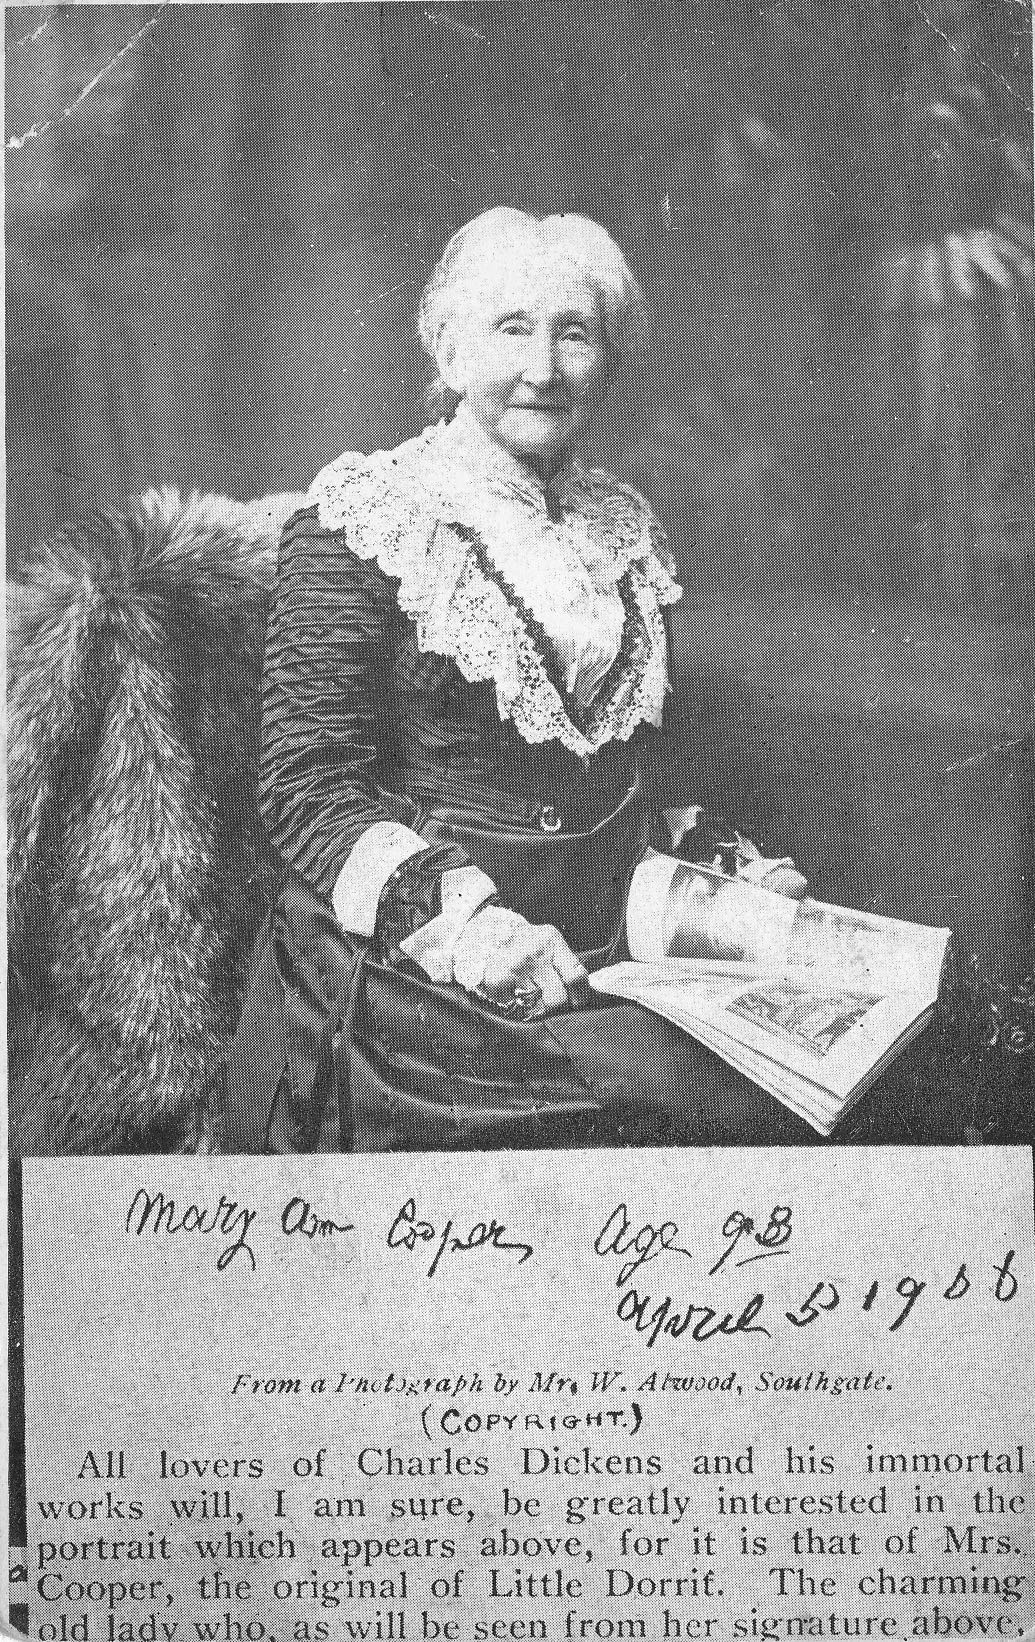 Mary Ann Cooper, Age 93
April 5 1906
From a Photograph by Mr. W. Atwood, Southgate.
(COPYRIGHT.)
All lovers of Charles Dickens and his immortal
works will, I am sure, be greatly interested in the
portrait which appears above, for it is that of Mrs.
Cooper, the original of Little Dorrit. The charming
old lady who, as will be seen from her signature above,